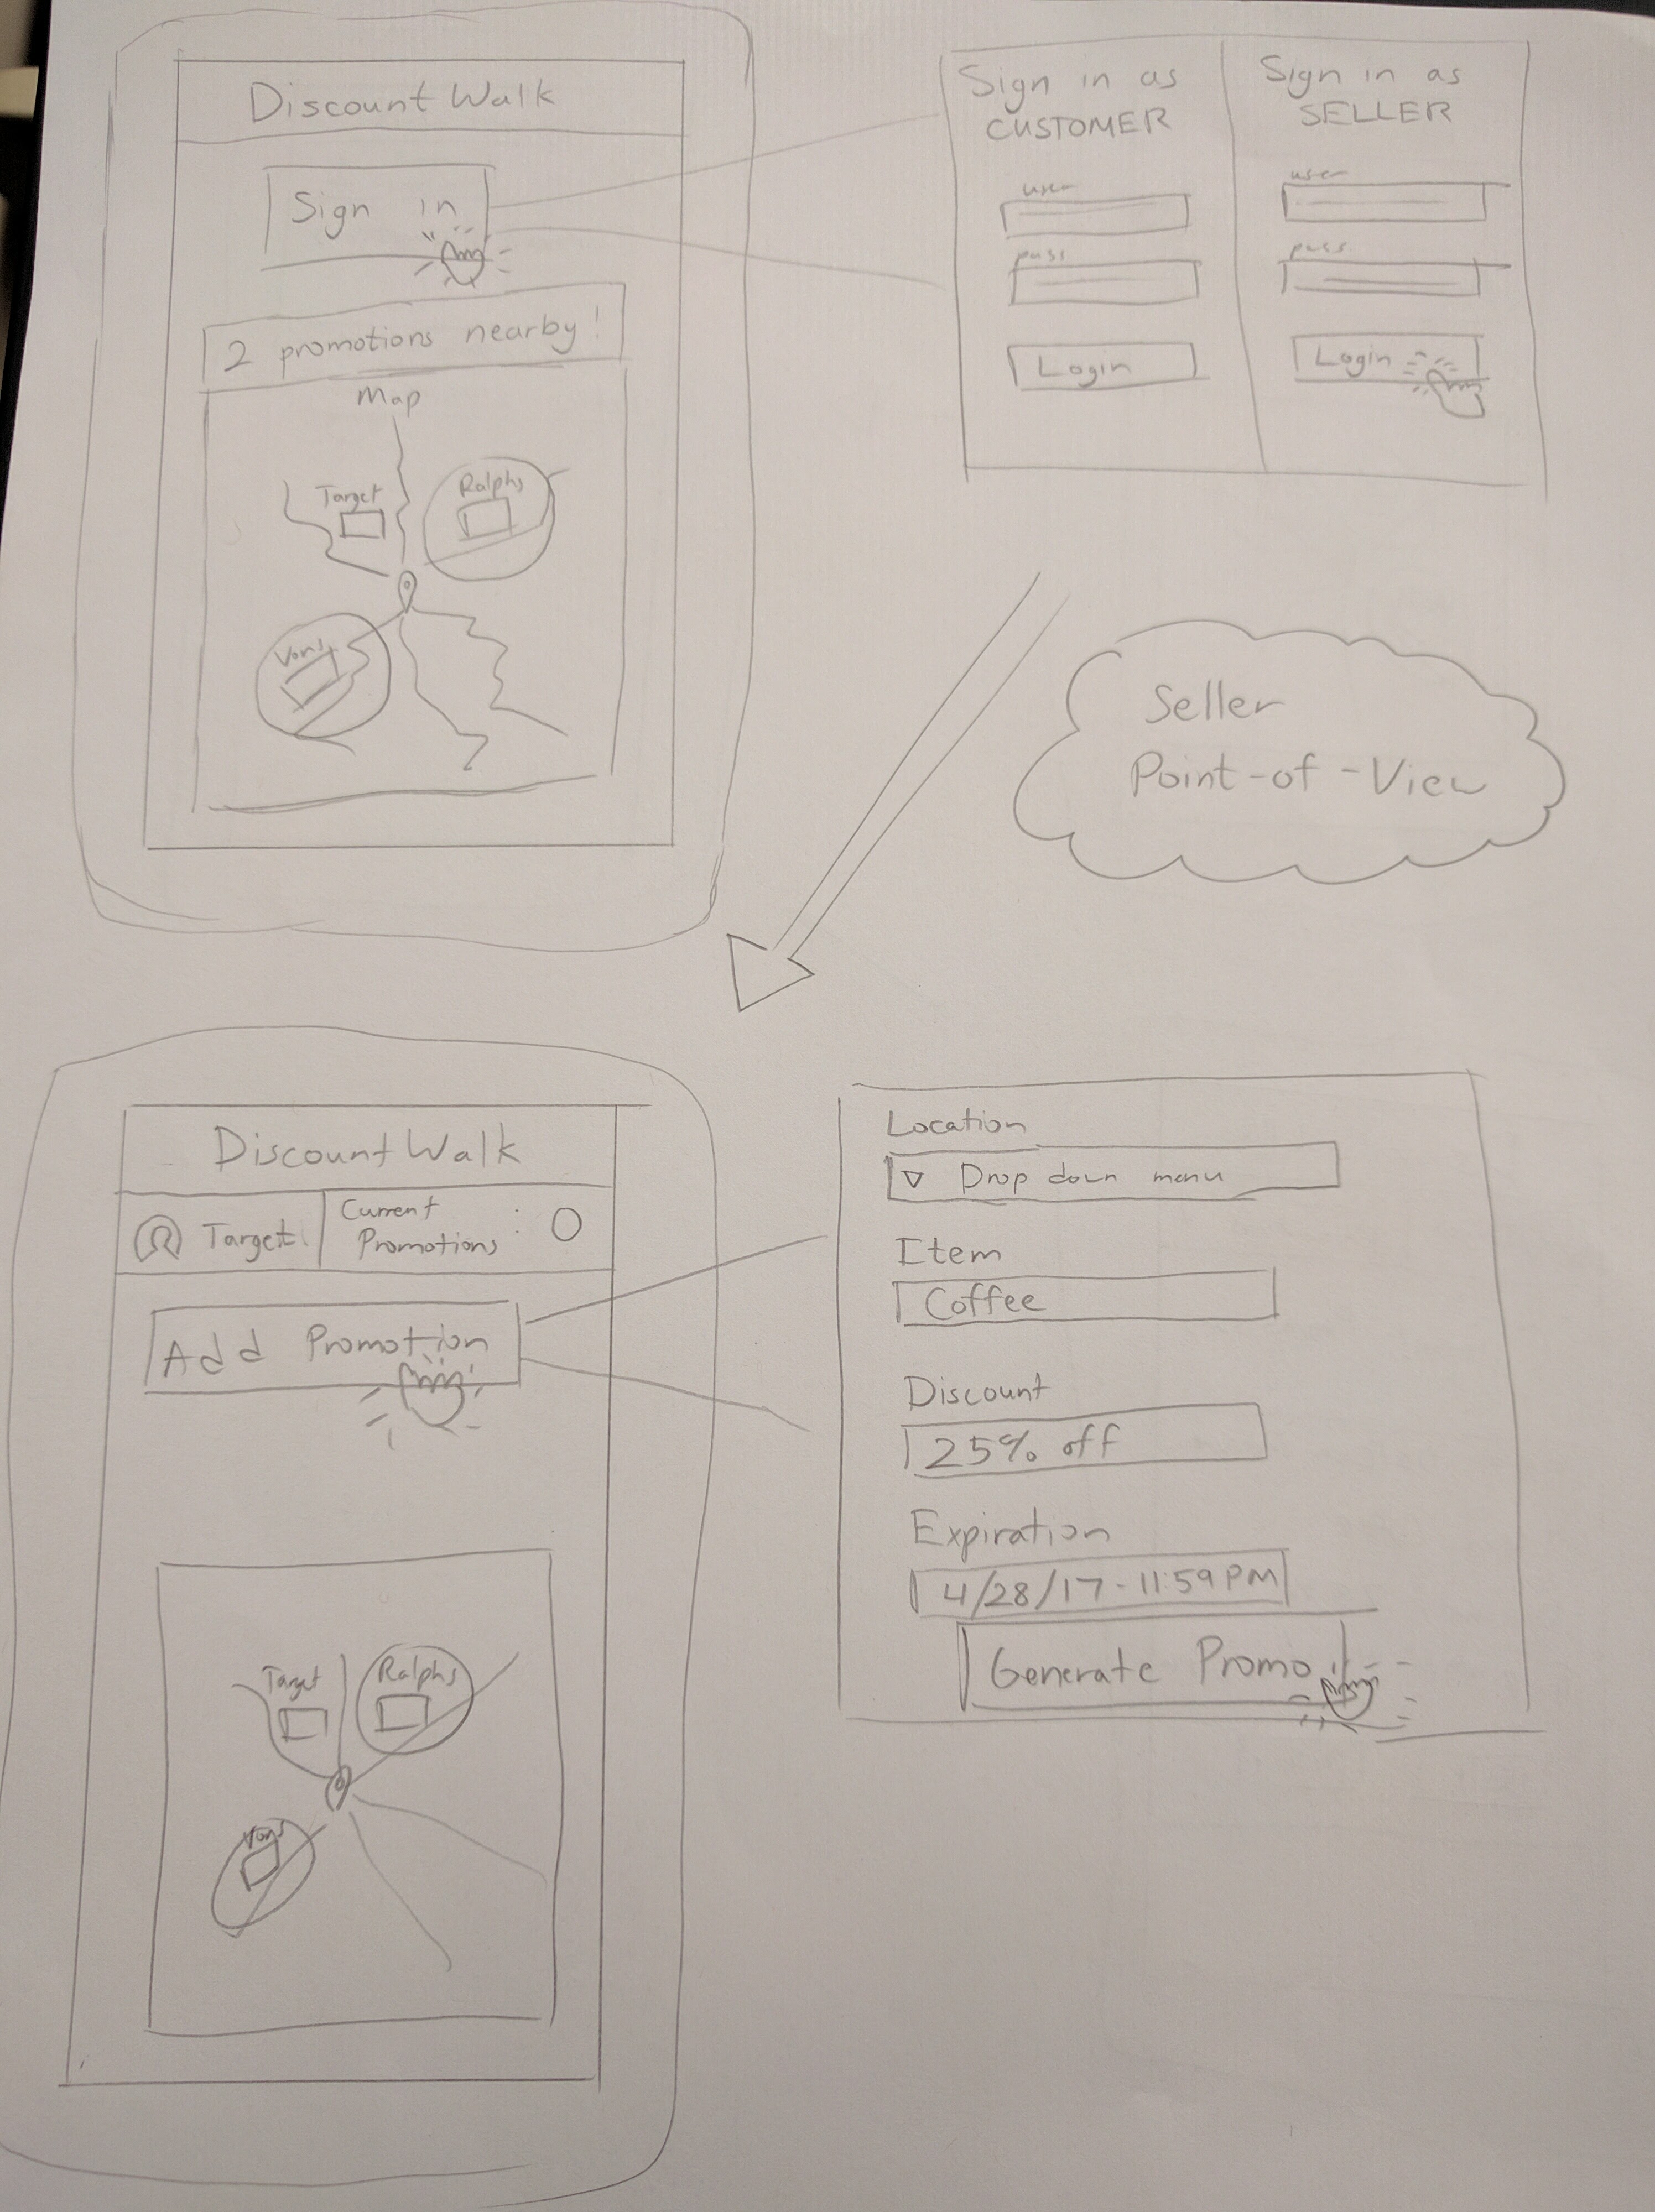 Discount Walk
Sign in
2 promotions nearby!
Map
Target
Ralphs
Vons
Sign in as
CUSTOMER
user
pass
Login
Sign in as
SELLER
user
pass
Login
Seller
Point-of-View
Discount Walk
Target
Current
Promotions : 0
Add Promotion
Target
Ralphs
Vons
Location
Drop down menu
Item
Coffee
Discount
25% off
Expiration
4/28/17 - 11:59 PM
Generate Promo